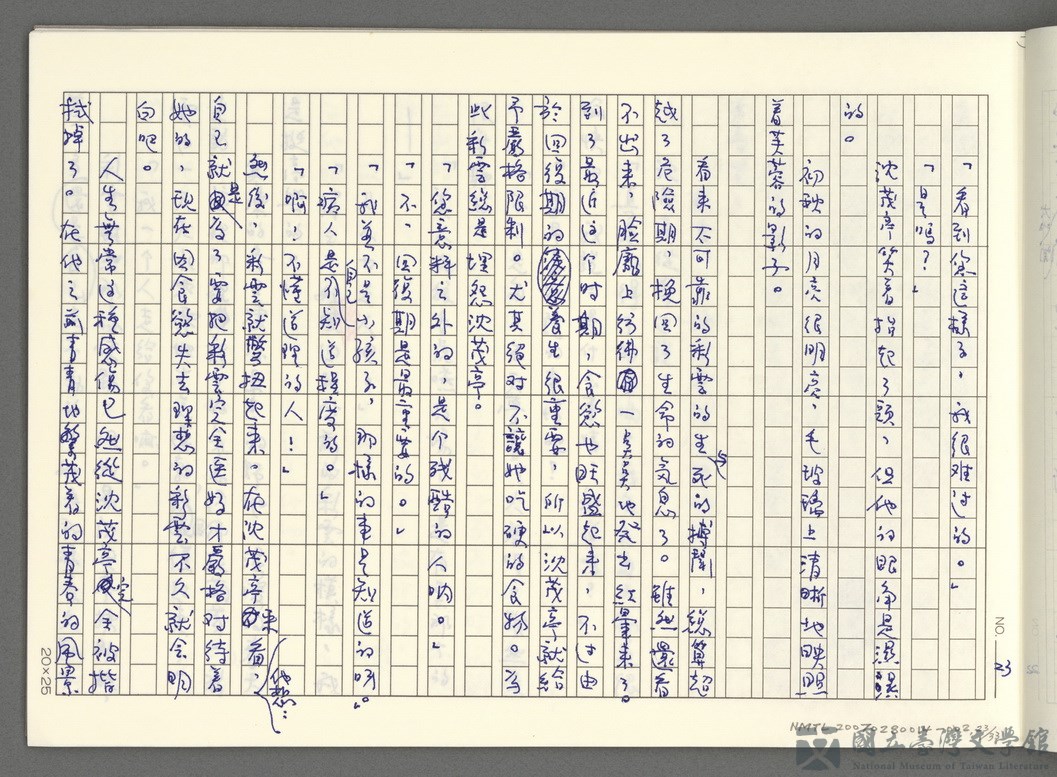 「看到你這樣子，我很难过的。」
「是吗？」
沈茂亭笑着抬起了頭，但他的眼角是濕濕
的。
初秋的月亮很明亮，毛玻璃上清晰地映照
着芙蓉的影子。
看来不可靠的彩雲的生与死的搏鬪，総算超
越了危險期，挽回了生命的氣息了。雖然還看
不出来，臉龐上彷彿一点点地發出紅暈来了。
到了最近这个时期，食慾也旺盛起来，不过由
於回復期的養生很重要，所以沈茂亭就給
予嚴格限制。尤其絕対不讓她吃硬的食物。為
此彩雲総是埋怨沈茂亭。
「您意料之外的，是个残酷的人哟。」
「不，回復期是最重要的。」
「我並不是小孩子，那樣的事是知道的呀。」
「病人自己是不知道程度的。」
「啊，不懂道理的人！」
然後，彩雲就彆扭起来。在沈茂亭来看，他想：
自己就是為了要把彩雲完全医好才嚴格对待着
她的，现在因食慾失去理智的彩雲不久就会明
白吧。
人生無常这種感傷已然從沈茂亭完全被揩
拭掉了。在他之前青青地繁茂着的青春的風景
NO. 23
20×25
NMTL 20070280014
國立臺灣文學館
National Museum of Taiwan Literature